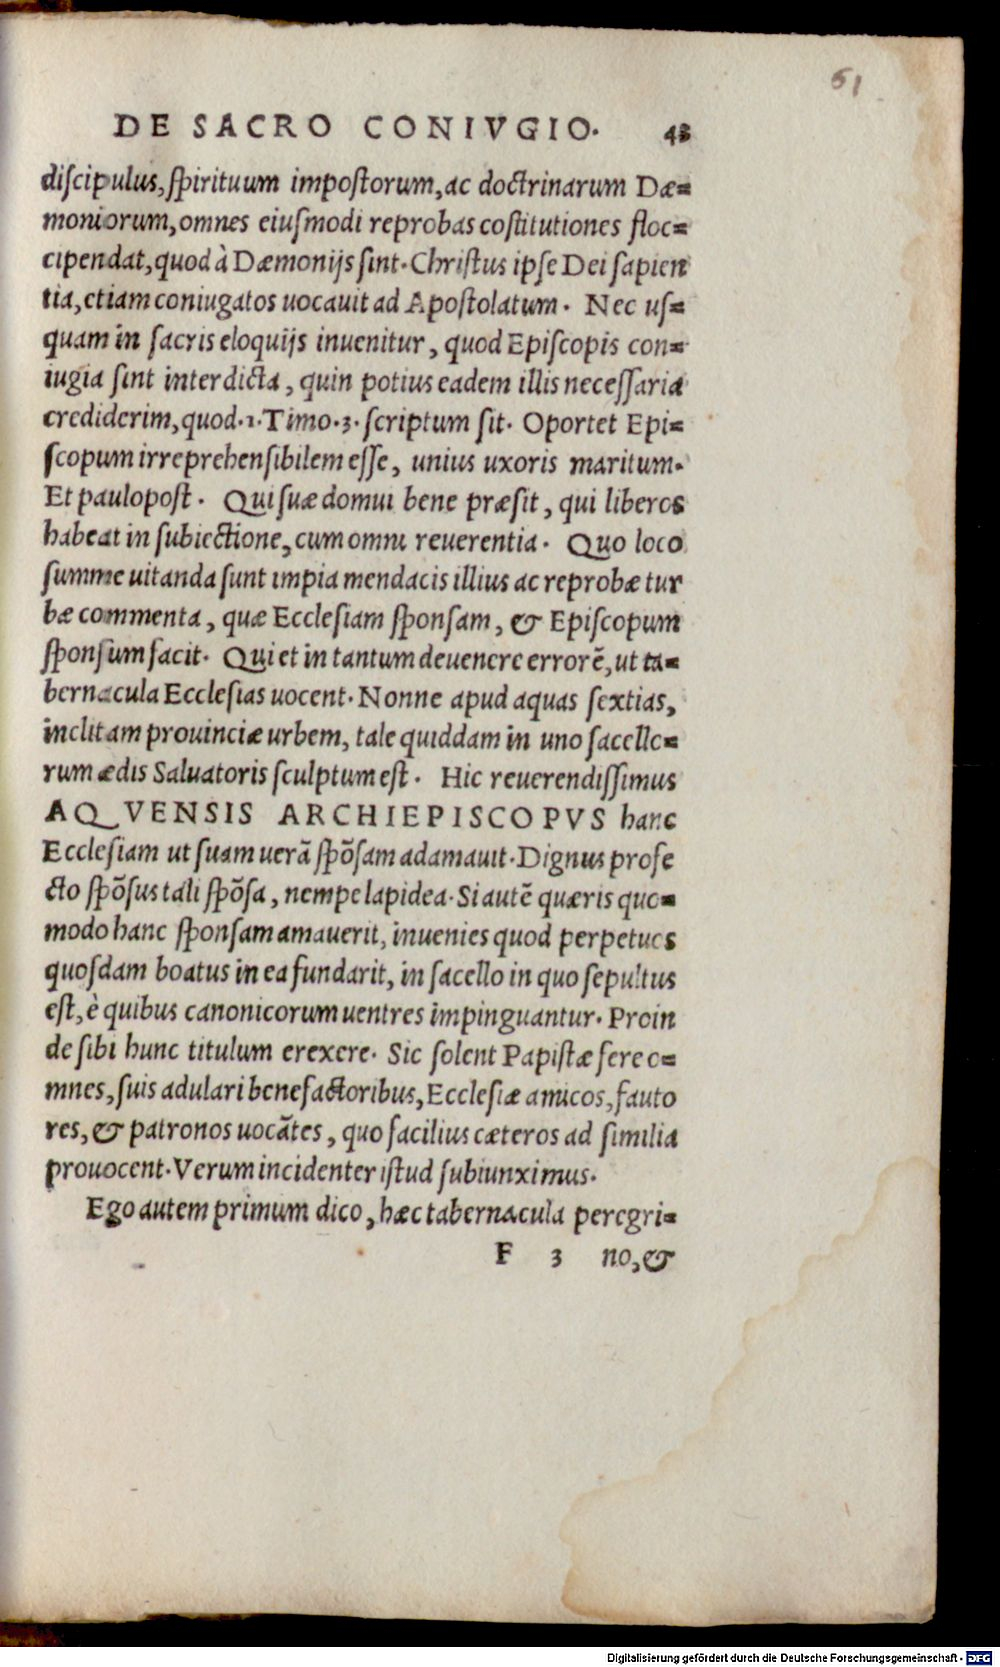 61
DE SACRO CONIVGIO. 43
diſcipulus, ſpirituum impoſtorum, ac doctrinarum Dæ=
moniorum, omnes eiuſmodi reprobas coſtitutiones floc=
cipendat, quod à Dæmonijs ſint. Chriſtus ipſe Dei ſapien
tia, etiam coniugatos uocauit ad Apoſtolatum. Nec uſ=
quam in ſacris eloquijs inuenitur, quod Epiſcopis con=
iugia ſint interdicta, quin potius eadem illis neceſſaria
crediderim, quod .1. Timo. 3. ſcriptum ſit. Oportet Epi=
ſcopum irreprehenſibilem eſſe, unius uxoris maritum.
Et paulopoſt. Qui ſuæ domui bene præſit, qui liberos
habeat in ſubiectione, cum omni reuerentia. Quo loco
ſumme uitanda ſunt impia mendacis illius ac reprobæ tur
bæ commenta, quæ Eccleſiam ſponſam, & Epiſcopum
ſponſum facit. Qui et in tantum deuenere errorē, ut ta=
bernacula Eccleſias uocent. Nonne apud aquas ſextias,
inclitam prouinciæ urbem, tale quiddam in uno ſacello=
rum ædis Saluatoris ſculptum eſt. Hic reuerendiſſimus
AQVENSIS ARCHIEPISCOPVS hanc
Eccleſiam ut ſuam uerā ſpōſam adamauit. Dignus profe
cto ſpōſus tali ſpōſa, nempe lapidea. Si autē quæris quo=
modo hanc ſponſam amauerit, inuenies quod perpetuos
quoſdam boatus in ea fundarit, in ſacello in quo ſepultus
eſt, è quibus canonicorum uentres impinguantur. Proin
de ſibi hunc titulum erexere. Sic ſolent Papiſtæ fere o=
mnes, ſuis adulari benefactoribus, Eccleſiæ amicos, fauto
res, & patronos uocātes, quo facilius cæteros ad ſimilia
prouocent. Verum incidenter iſtud ſubiunximus.
Ego autem primum dico, hæc tabernacula peregri=
F 3 no, &
Digitalisierung gefördert durch die Deutsche Forschungsgemeinschaft - DFG